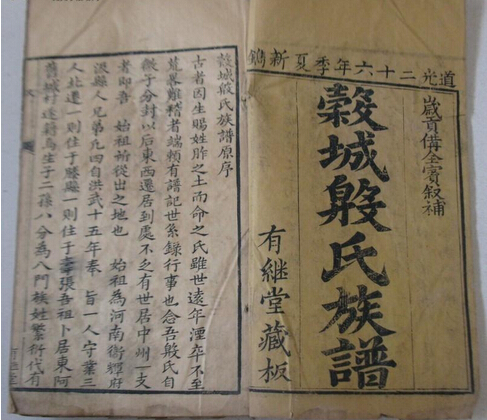 道光二十六年季夏新鐫
歲貢全賓叙補
榖城殷氏族譜
有継堂藏板
榖城殷氏族譜原序
古者因生賜姓胙之土而命之氏雖世遠年湮卒不至
畧難稽者端頼有譜記世系錄行事也念吾殷氏自
微子分封以后東西遷居到處不乏有世居中州一支
者即吾 始祖所從出之地也 始祖為河南衛輝府
縣人兄弟凡四自洪武十五年奉 旨一人守業三
人北遷一則住于滕縣一則住于壽張吾祖卜居東阿
舊城村遂籍焉生子二孫八分為八門族姓繁衍代有